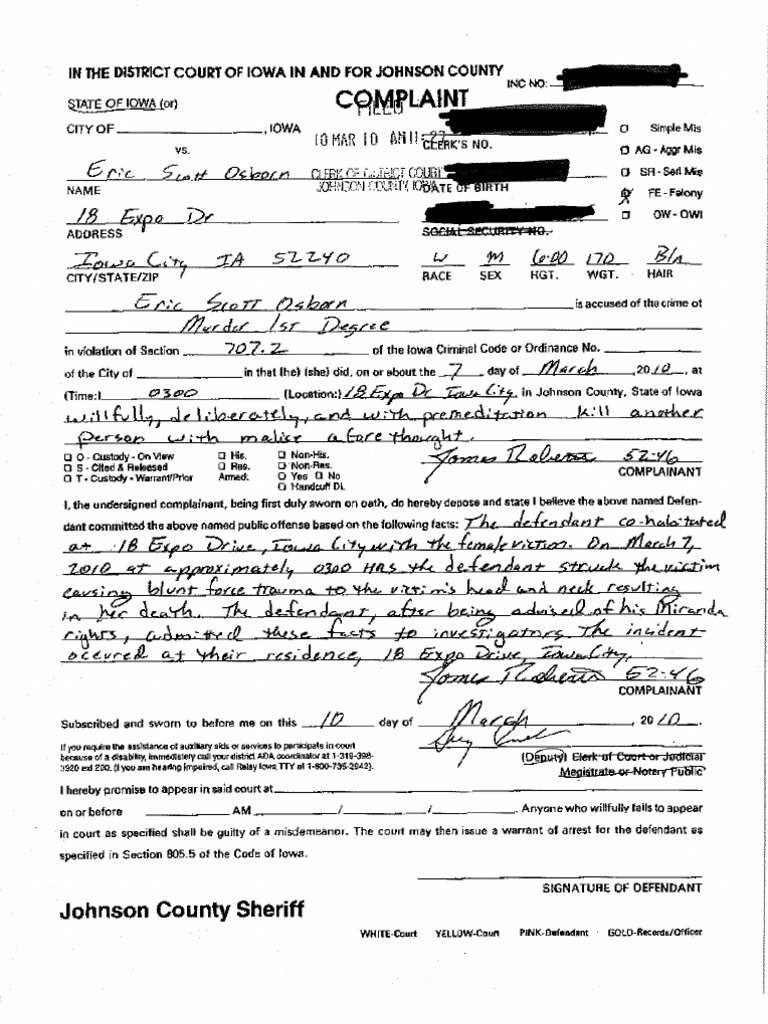 IN THE DISTRICT COURT OF IOWA IN AND FOR JOHNSON COUNTY
INC NO:
STATE OF IOWA (or)
COMPLAINT
FILED
CITY OF , IOWA
10 MAR 10 AM 11:27
CLERK'S NO.
□ Simple Mis
vs.
□ AG - Aggr Mis
Eric Scott Osborn
CLERK OF DISTRICT COURT
□ SR - Seri Mis
NAME
JOHNSON COUNTY, IOWA
DATE OF BIRTH
FE - Felony
18 Expo Dr
□ OW - OWI
ADDRESS
SOCIAL SECURITY NO.
Iowa City IA 52240
W M 6:00 170 Bln
CITY/STATE/ZIP
RACE SEX HGT. WGT. HAIR
Eric Scott Osborn is accused of the crime of
Murder 1st Degree
in violation of Section 707.2 of the Iowa Criminal Code or Ordinance No.
of the City of in that (he) (she) did, on or about the 7 day of March , 2010, at
(Time:) 0300 (Location:) 18 Expo Dr Iowa City in Johnson County, State of Iowa
willfully, deliberately, and with premeditation kill another
person with malice afore thought.
□ O - Custody - On View □ His. □ Non-His.
□ S - Cited & Released □ Res. □ Non-Res.
□ T - Custody - Warrant/Prior Armed. □ Yes □ No
□ Handcuff DL
James Roberts 52-46
COMPLAINANT
I, the undersigned complainant, being first duly sworn on oath, do hereby depose and state I believe the above named Defen-
dant committed the above named public offense based on the following facts: The defendant co-habitated
at 18 Expo Drive, Iowa City with the female victim. On March 7,
2010 at approximately 0300 HRS the defendant struck the victim
causing blunt force trauma to the victim's head and neck resulting
in her death. The defendant, after being advised of his Miranda
rights, admitted these facts to investigators. The incident
occured at their residence, 18 Expo Drive, Iowa City.
James Roberts 52-46
COMPLAINANT
Subscribed and sworn to before me on this 10 day of March , 2010.
If you require the assistance of auxiliary aids or services to participate in court
because of a disability, immediately call your district ADA coordinator at 1-319-398-
3920 ext 200. (If you are hearing impaired, call Relay Iowa TTY at 1-800-735-2942).
(Deputy) Clerk of Court or Judicial
Magistrate or Notary Public
I hereby promise to appear in said court at
on or before AM / / . Anyone who willfully fails to appear
in court as specified shall be guilty of a misdemeanor. The court may then issue a warrant of arrest for the defendant as
specified in Section 805.5 of the Code of Iowa.
SIGNATURE OF DEFENDANT
Johnson County Sheriff
WHITE-Court YELLOW-Court PINK-Defendant GOLD-Records/Officer